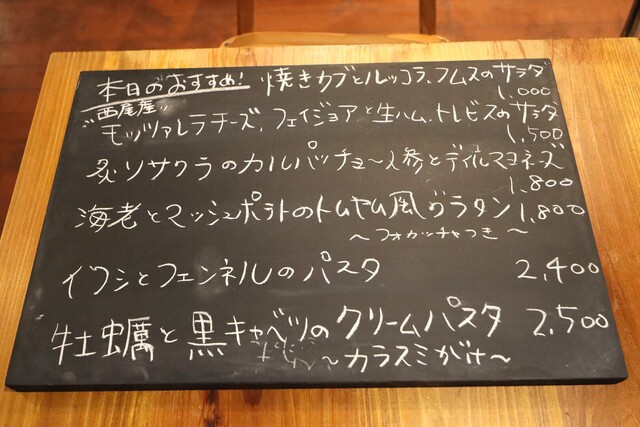 本日のおすすめ! 焼きカブとルッコラ、フムスのサラダ
1,000
西尾産
"モッツァレラチーズ、フェイジョアと生ハム、トレビスのサラダ
1,500
炙りサワラのカルパッチョ〜人参とディルマヨネーズ
1,800
海老とマッシュポテトのトムヤム風グラタン 1,800
〜フォカッチャつき〜
イワシとフェンネルのパスタ 2,400
牡蠣と黒キャベツのクリームパスタ 2,500
〜カラスミがけ〜